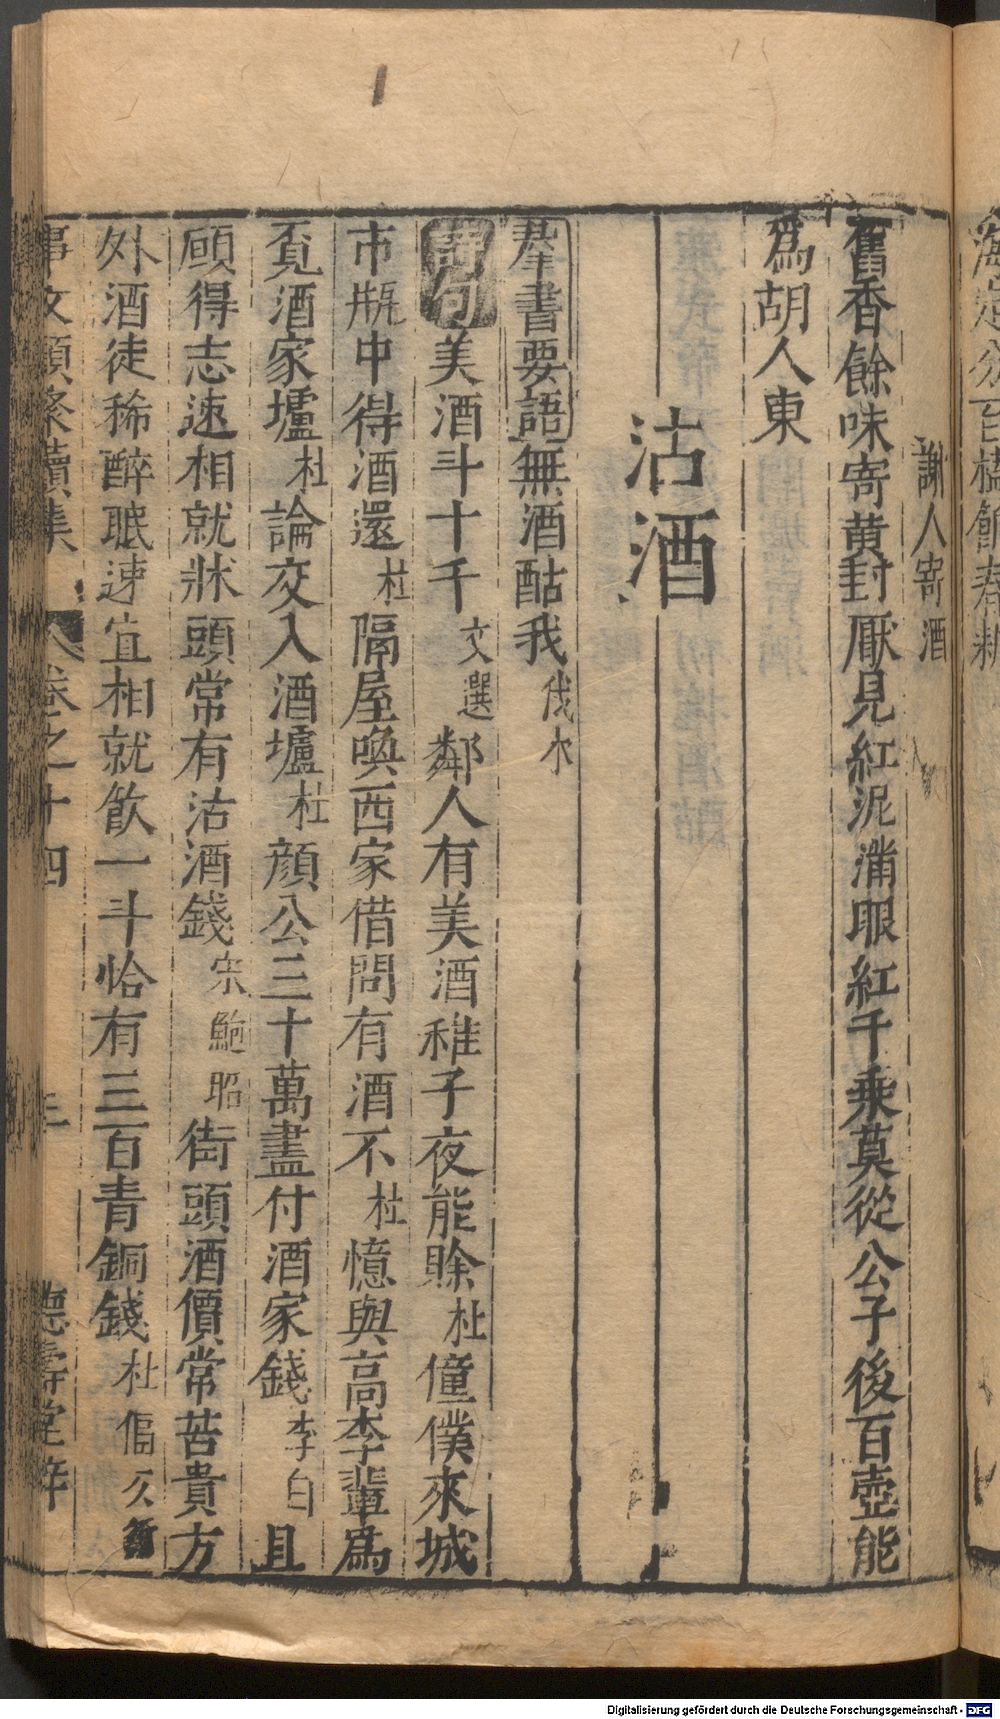 謝人寄酒
舊香餘味寄黄封厭見紅泥滿眼紅千乘莫從公子後百壺能
爲胡人東
沽酒
羣書要語無酒酤我伐木
詩句美酒斗十千文選鄰人有美酒稚子夜能賒杜僮僕來城
市瓶中得酒還杜隔屋喚西家借問有酒不杜憶與高李輩爲
覔酒家壚杜論交入酒壚杜顔公三十萬盡付酒家錢李白且
願得志速相就牀頭常有沽酒錢宋鮑昭街頭酒價常苦貴方
外酒徒稀醉眠速宜相就飲一斗恰有三百青銅錢杜偪仄行
事文類聚續集 卷之十四 三 德壽堂梓
Digitalisierung gefördert durch die Deutsche Forschungsgemeinschaft - DFG